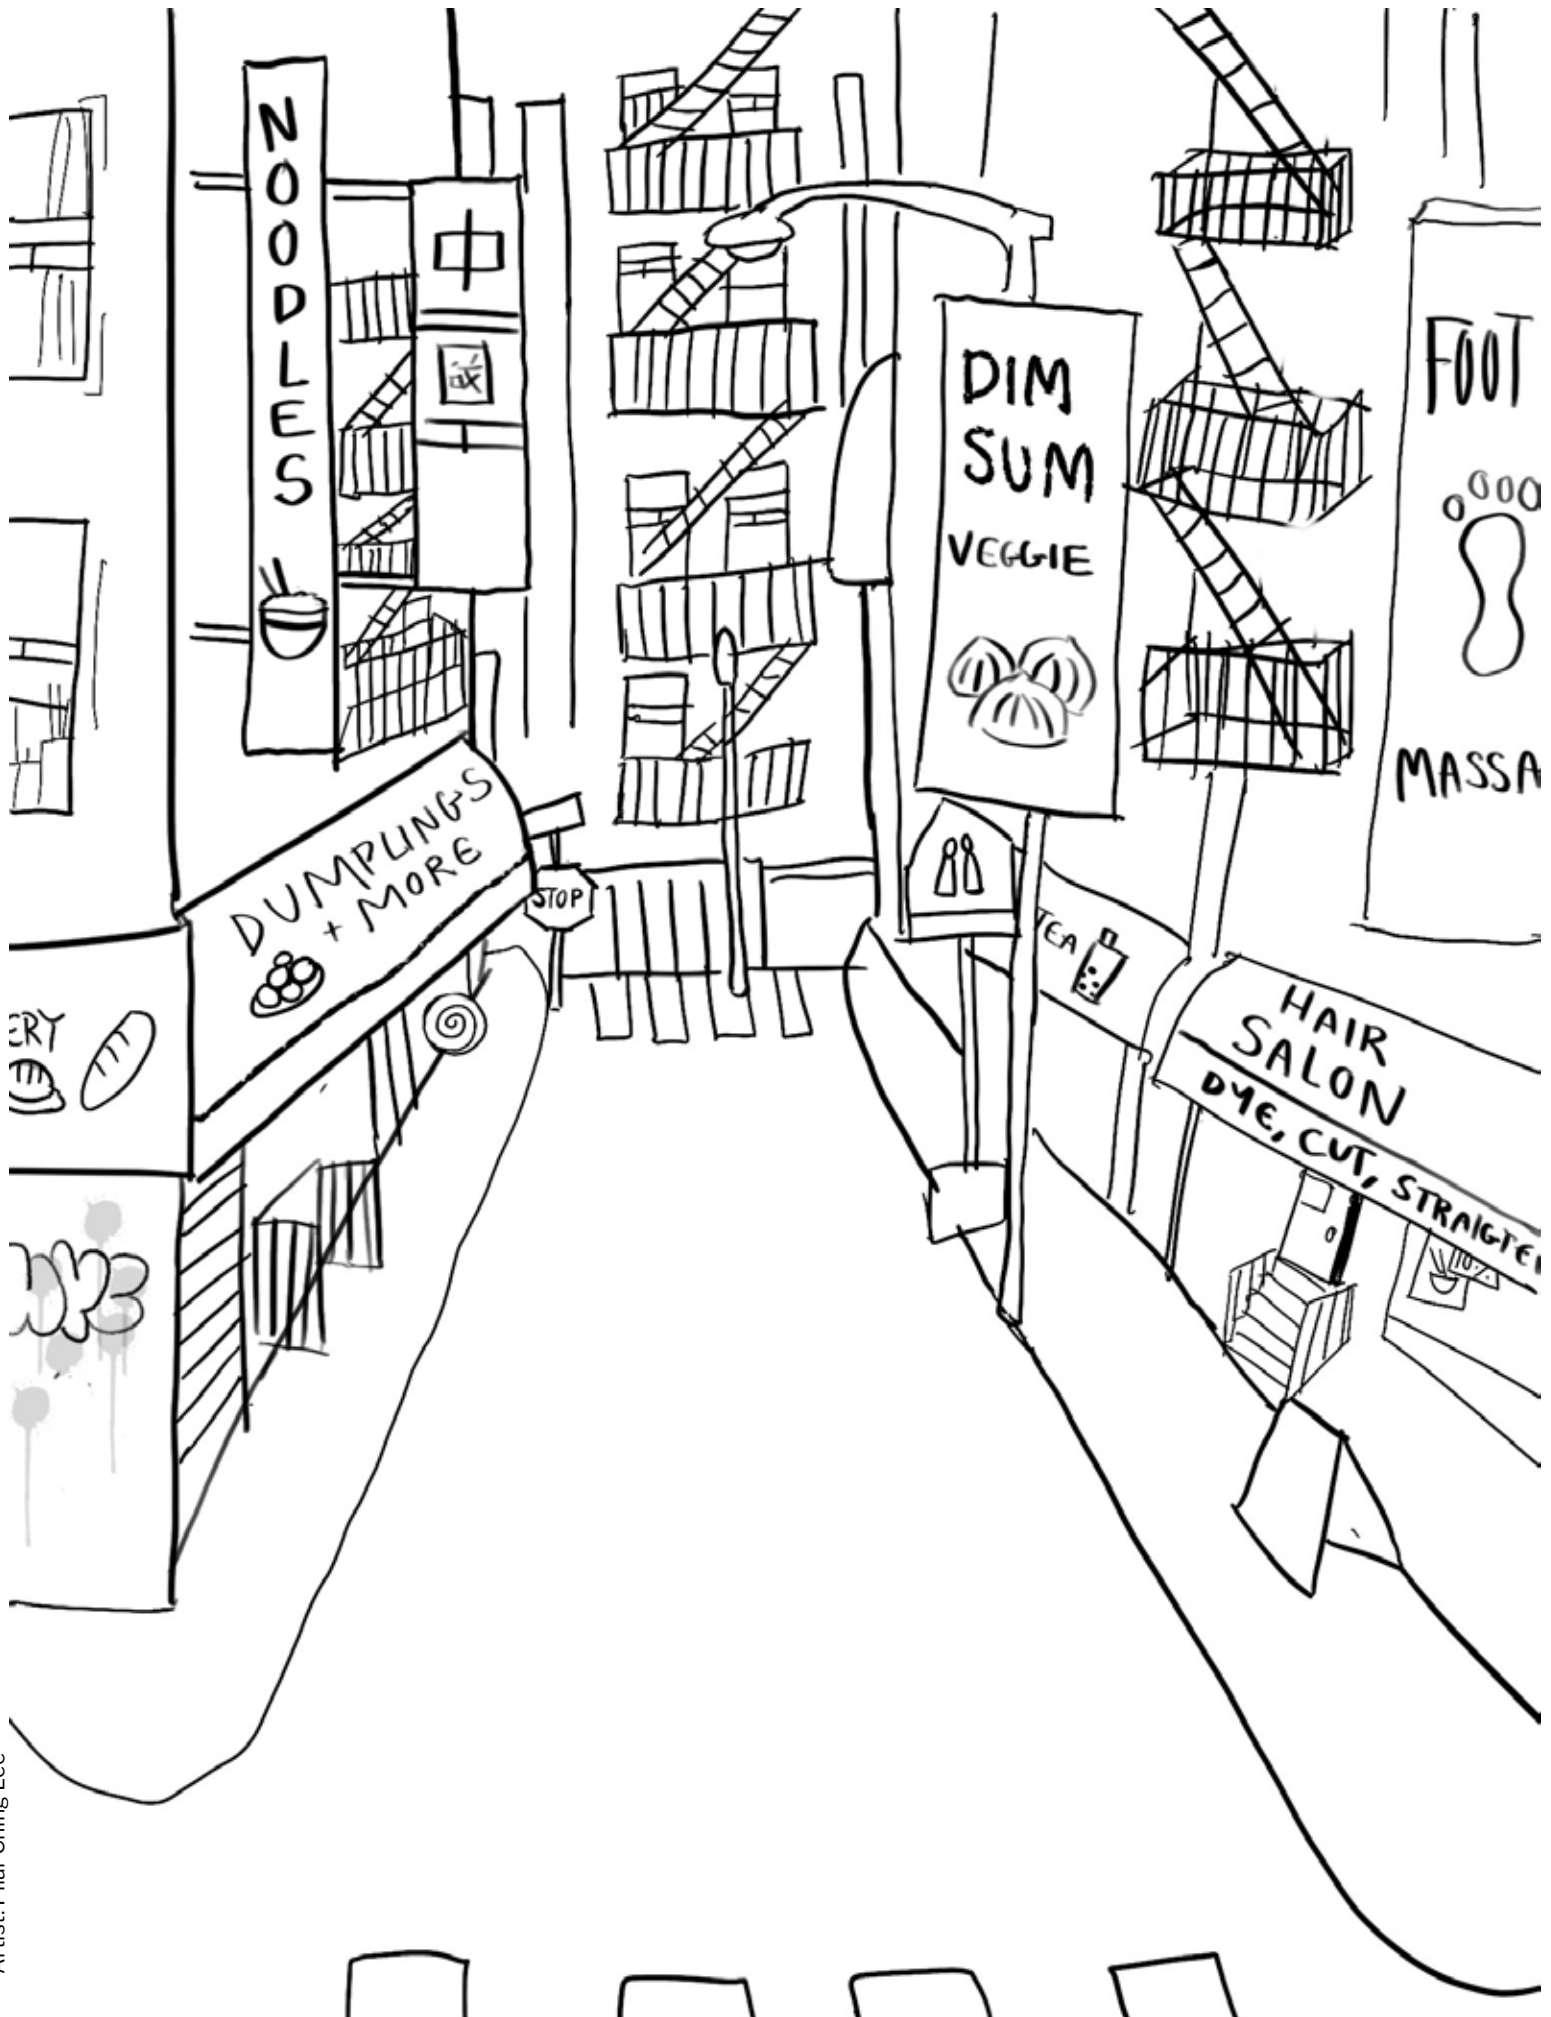 NOODLES
中
FOOT
DIM
SUM
VEGGIE
MASSA
DUMPLINGS
+ MORE
STOP
TEA
ERY
HAIR
SALON
DYE, CUT, STRAIGTE
10